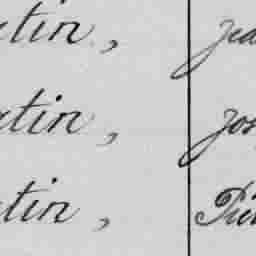 tin, Jea
tin, Jos
tin, Pier